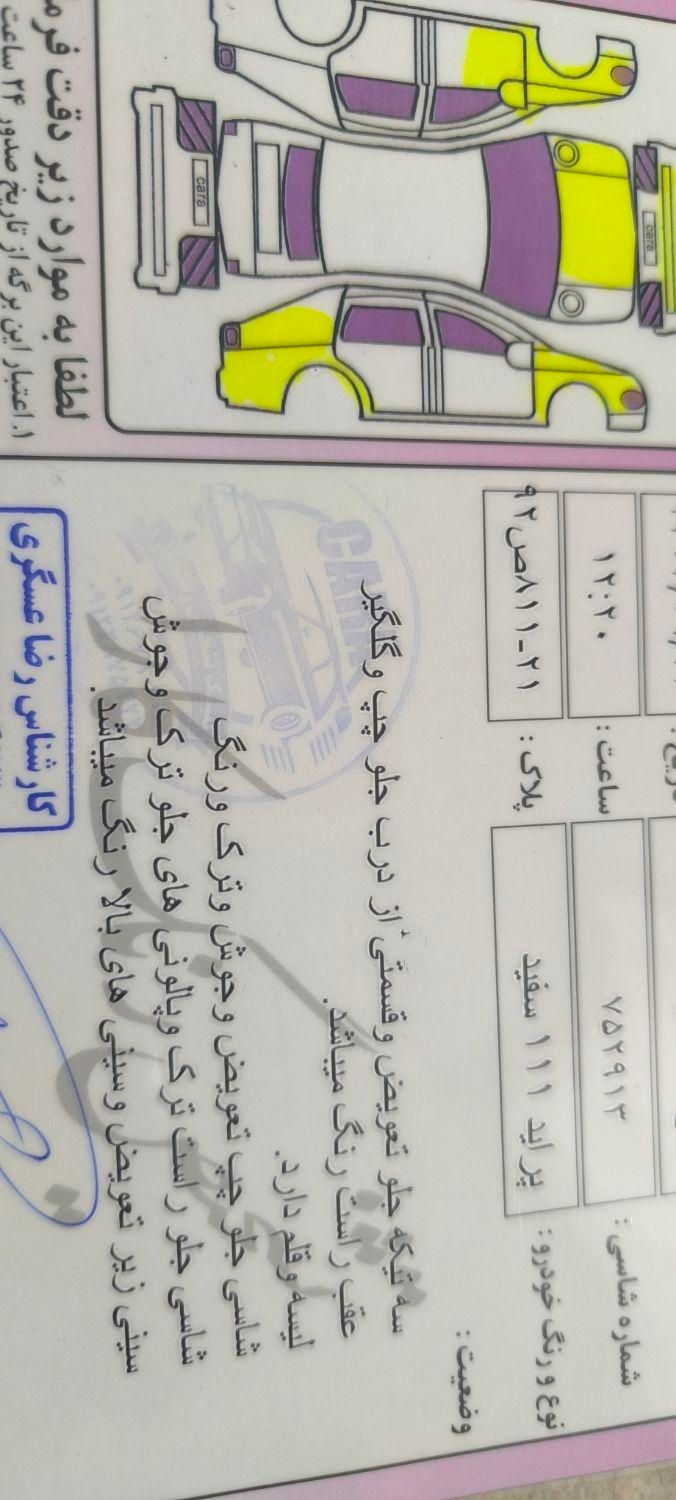 ساعت : ۱۲:۲۰
پلاک : ۲۱-۸۱۱ص۹۲
شماره شاسی : ۷۵۲۹۱۳
نوع و رنگ خودرو : پراید ۱۱۱ سفید
وضعیت :
سه تیکه جلو تعویض وقسمتی از درب جلو چپ وگلگیر
عقب راست رنگ میباشد.
لیسه وقلم دارد.
شاسی جلو چپ تعویض وجوش وترک ورنگ
شاسی جلو راست ترک وپالونی های جلو ترک وجوش
سینی زیر تعویض وسینی های بالا رنگ میباشد.
کارشناس رضا عسگری
cara
cara
CARA
لطفا به موارد زیر دقت فرم
۱. اعتبار این برگه از تاریخ صدور ۲۴ ساعت